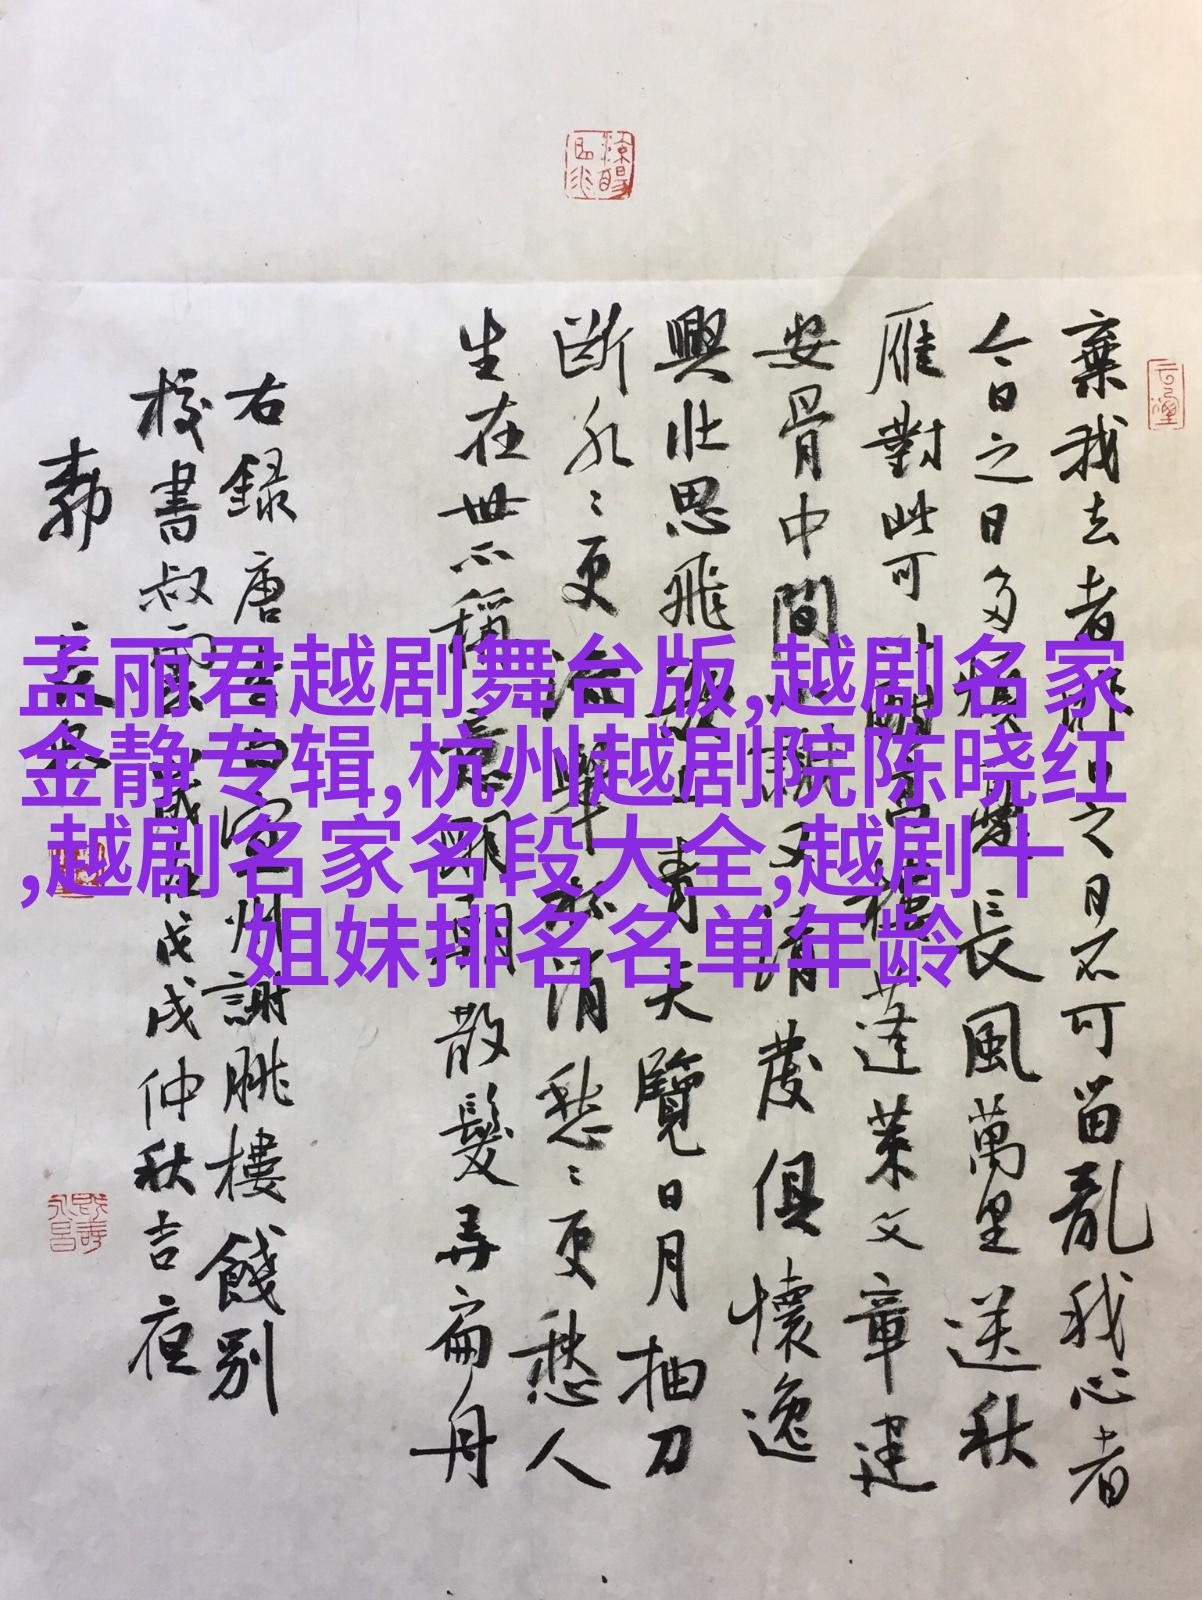 孟丽君越剧舞台版,越剧名家
金静专辑,杭州越剧院陈晓红
,越剧名家名段大全,越剧十
姐妹排名名单年龄
棄我去者昨日之日不可留亂我心者
今日之日多煩憂長風萬里送秋
雁對此可以酣高樓蓬萊文章建
安骨中間小謝又清發俱懷逸
興壯思飛欲上青天覽日月抽刀
斷水〻更流舉杯消愁〻更愁人
生在世不稱意明朝散髮弄扁舟
右錄唐李白宣州謝朓樓餞別
校書叔雲歲在戊戌仲秋吉夜